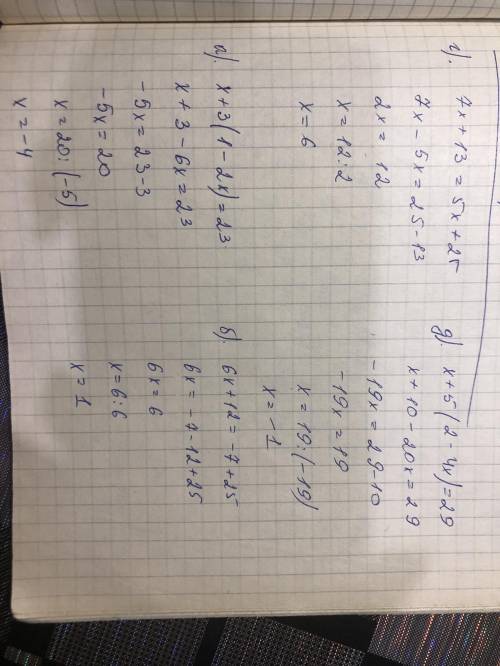 г). 7x + 13 = 5x + 25
7x - 5x = 25 - 13
2x = 12
x = 12 : 2
x = 6
д). x + 5(2 - 4x) = 29
x + 10 - 20x = 29
-19x = 29 - 10
-19x = 19
x = 19 : (-19)
x = -1
а). x + 3(1 - 2x) = 23
x + 3 - 6x = 23
-5x = 23 - 3
-5x = 20
x = 20 : (-5)
x = -4
б). 6x + 12 = -7 + 25
6x = -7 - 12 + 25
6x = 6
x = 6 : 6
x = 1